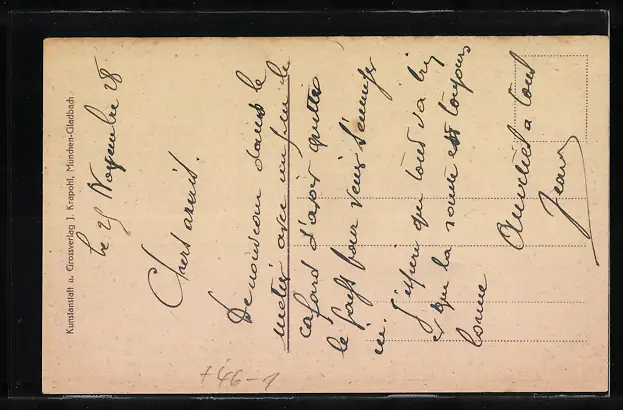 Kunstanstalt u. Grossverlag J. Krapohl, München-Gladbach
le 25 Novembre 28
Chers amis.
De nouveau dans le
metier avec un peu le
cafard d'avoir quitté
le pays pour venir s'ennuyer
ici. J'espere que tout va bien
et que la santé est toujours
bonne
Amitiés a tous
Jean
+46-1